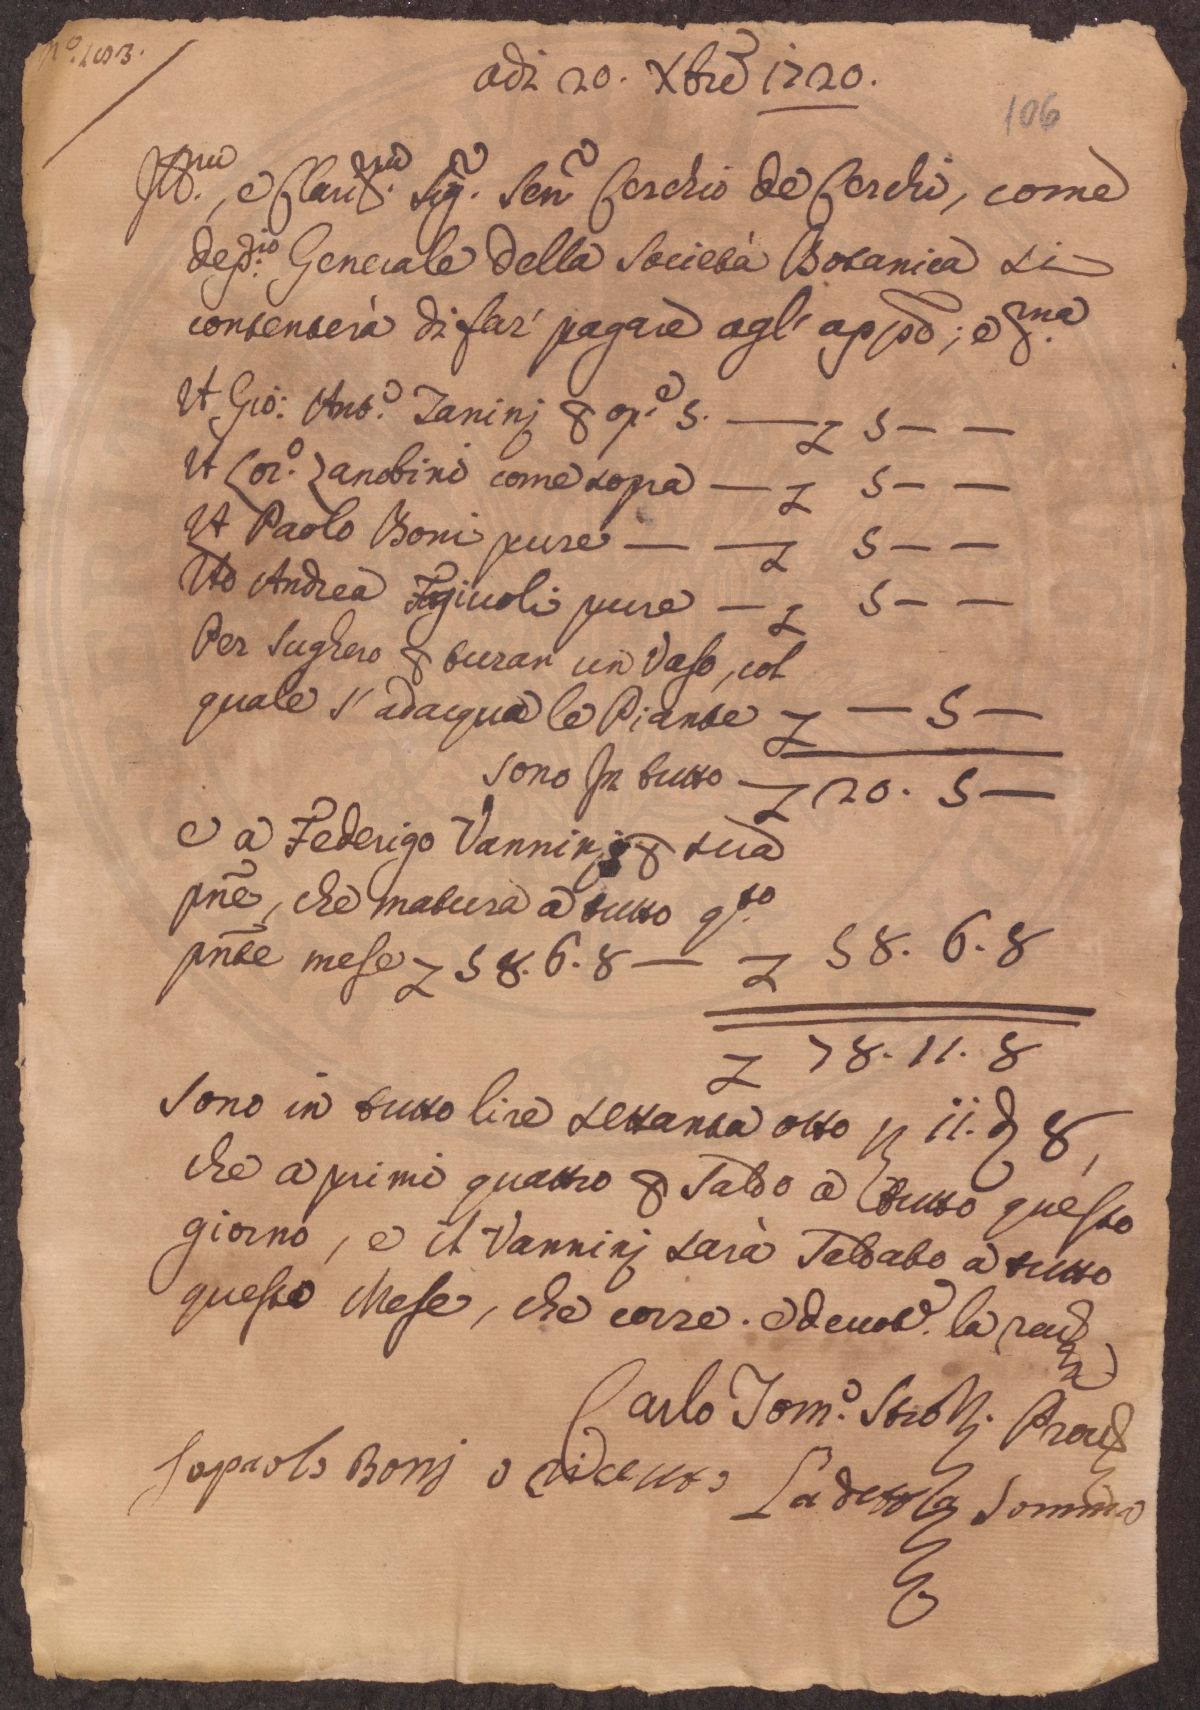 N.º 103.
adi 20. Xbre 1720.
106
Ill.mo, e Clariss.mo Sig.re Sen.re Cerchio de Cerchi, come
dep.rio Generale della Società Botanica si
contenterà di far' pagare agl' app.o; e p.ma
A Gio: Ant.o Zaninj p op.e 5. — £ 5 — —
A Lor.o Zanobini come sopra — £ 5 — —
A Paolo Boni pure — — £ 5 — —
Ad Andrea pure — £ 5 — —
Per Sughero p turar un Vaso, col
quale s' adacqua le Piante £ — 5 —
sono In tutto — £ 20. 5 —
e a Federigo Vanninj p sua
pne, che matura a tutto q.to
pnte mese £ 58. 6. 8 — £ 58. 6. 8
£ 78. 11. 8
sono in tutto lire settanta otto s 11. d 8,
che a primi quattro p saldo a tutto questo
giorno, e il Vanninj sarà saldato a tutto
questo Mese, che corre. e devot.e la
Carlo Tom.o Strozzj. Prov.e
Io paolo Bonj o ricevuto La detta Somma